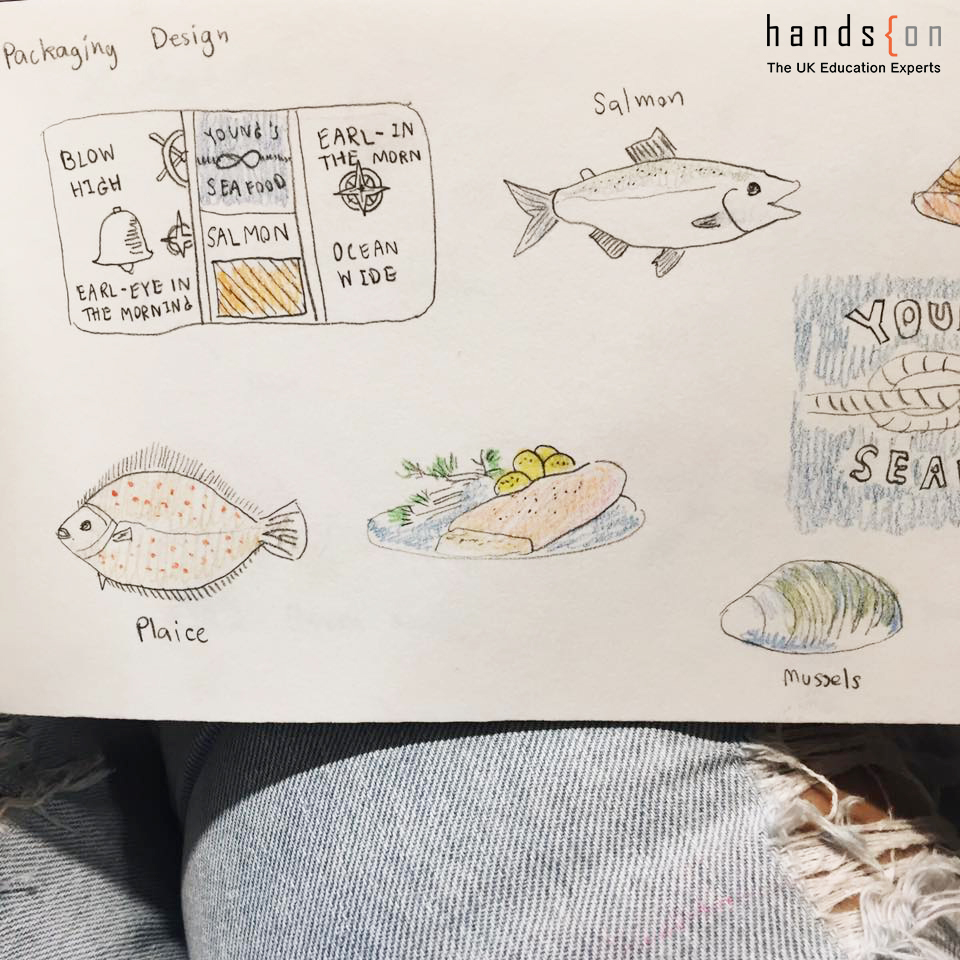 Packaging Design
hands{on
The UK Education Experts
BLOW
HIGH
EARL-EYE IN
THE MORNING
YOUNG'S
SEAFOOD
SALMON
EARL-IN
THE MORN
OCEAN
WIDE
Salmon
YOU
SEA
Plaice
Mussels